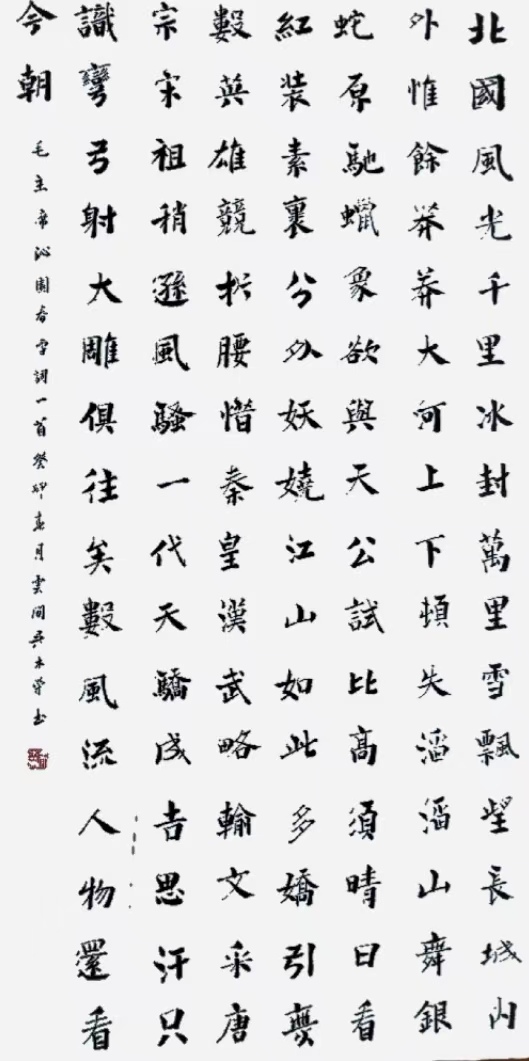 北國風光千里冰封萬里雪飄望長城内
外惟餘莽莽大河上下頓失滔滔山舞銀
蛇原馳蠟象欲與天公試比高須晴日看
紅裝素裹分外妖嬈江山如此多嬌引無
數英雄競折腰惜秦皇漢武略輸文采唐
宗宋祖稍遜風騷一代天驕成吉思汗只
識彎弓射大雕俱往矣數風流人物還看
今朝
毛主席沁園春雪詞一首癸卯春月雲間吳木书